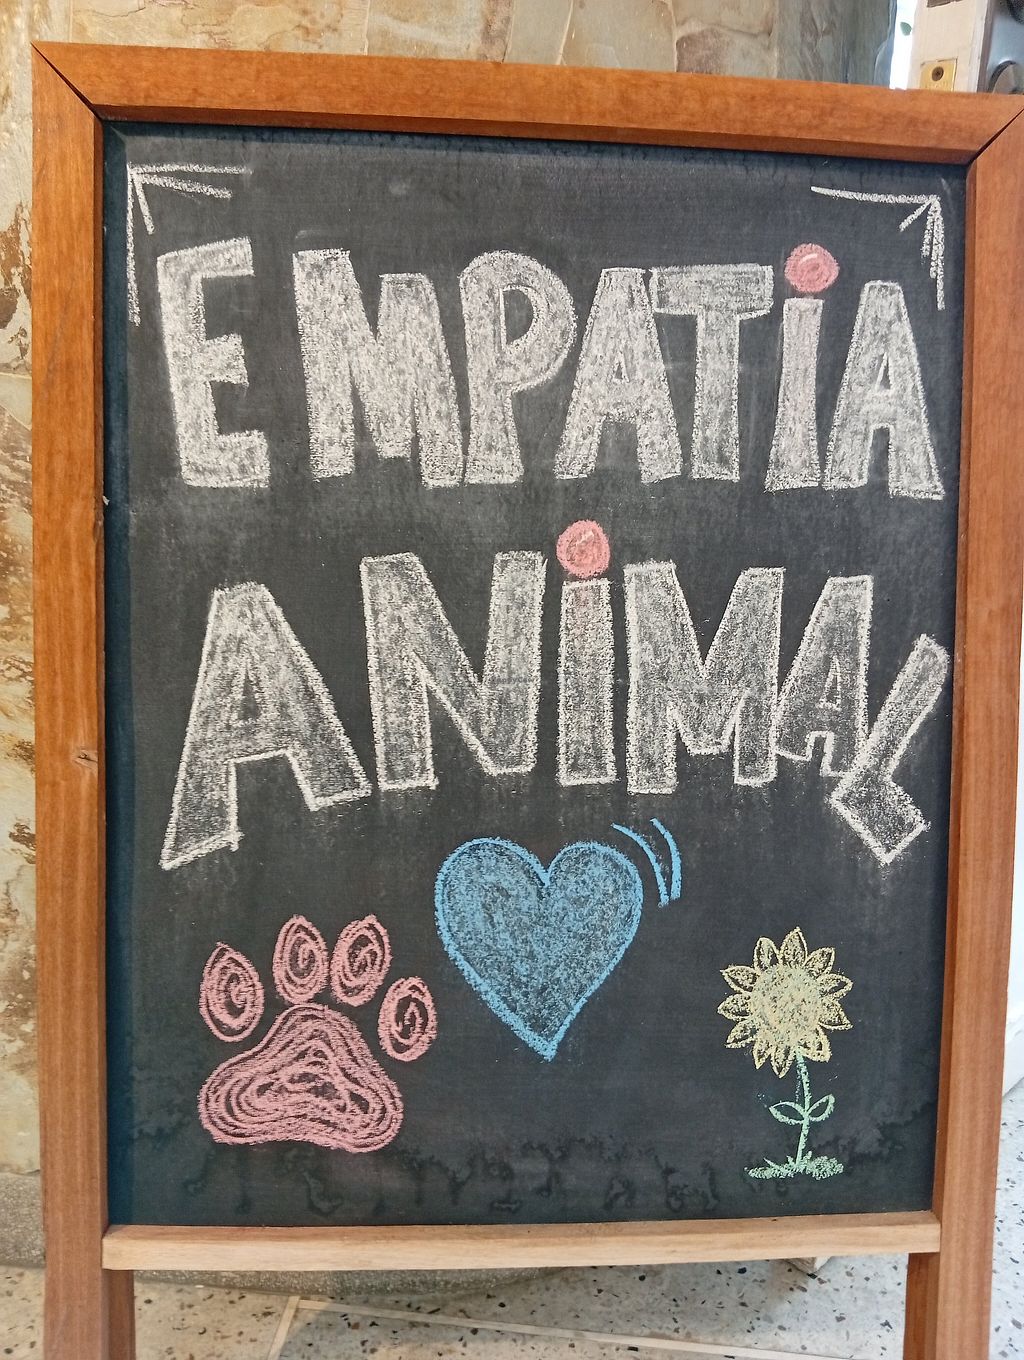 EMPATiA
ANiMAL